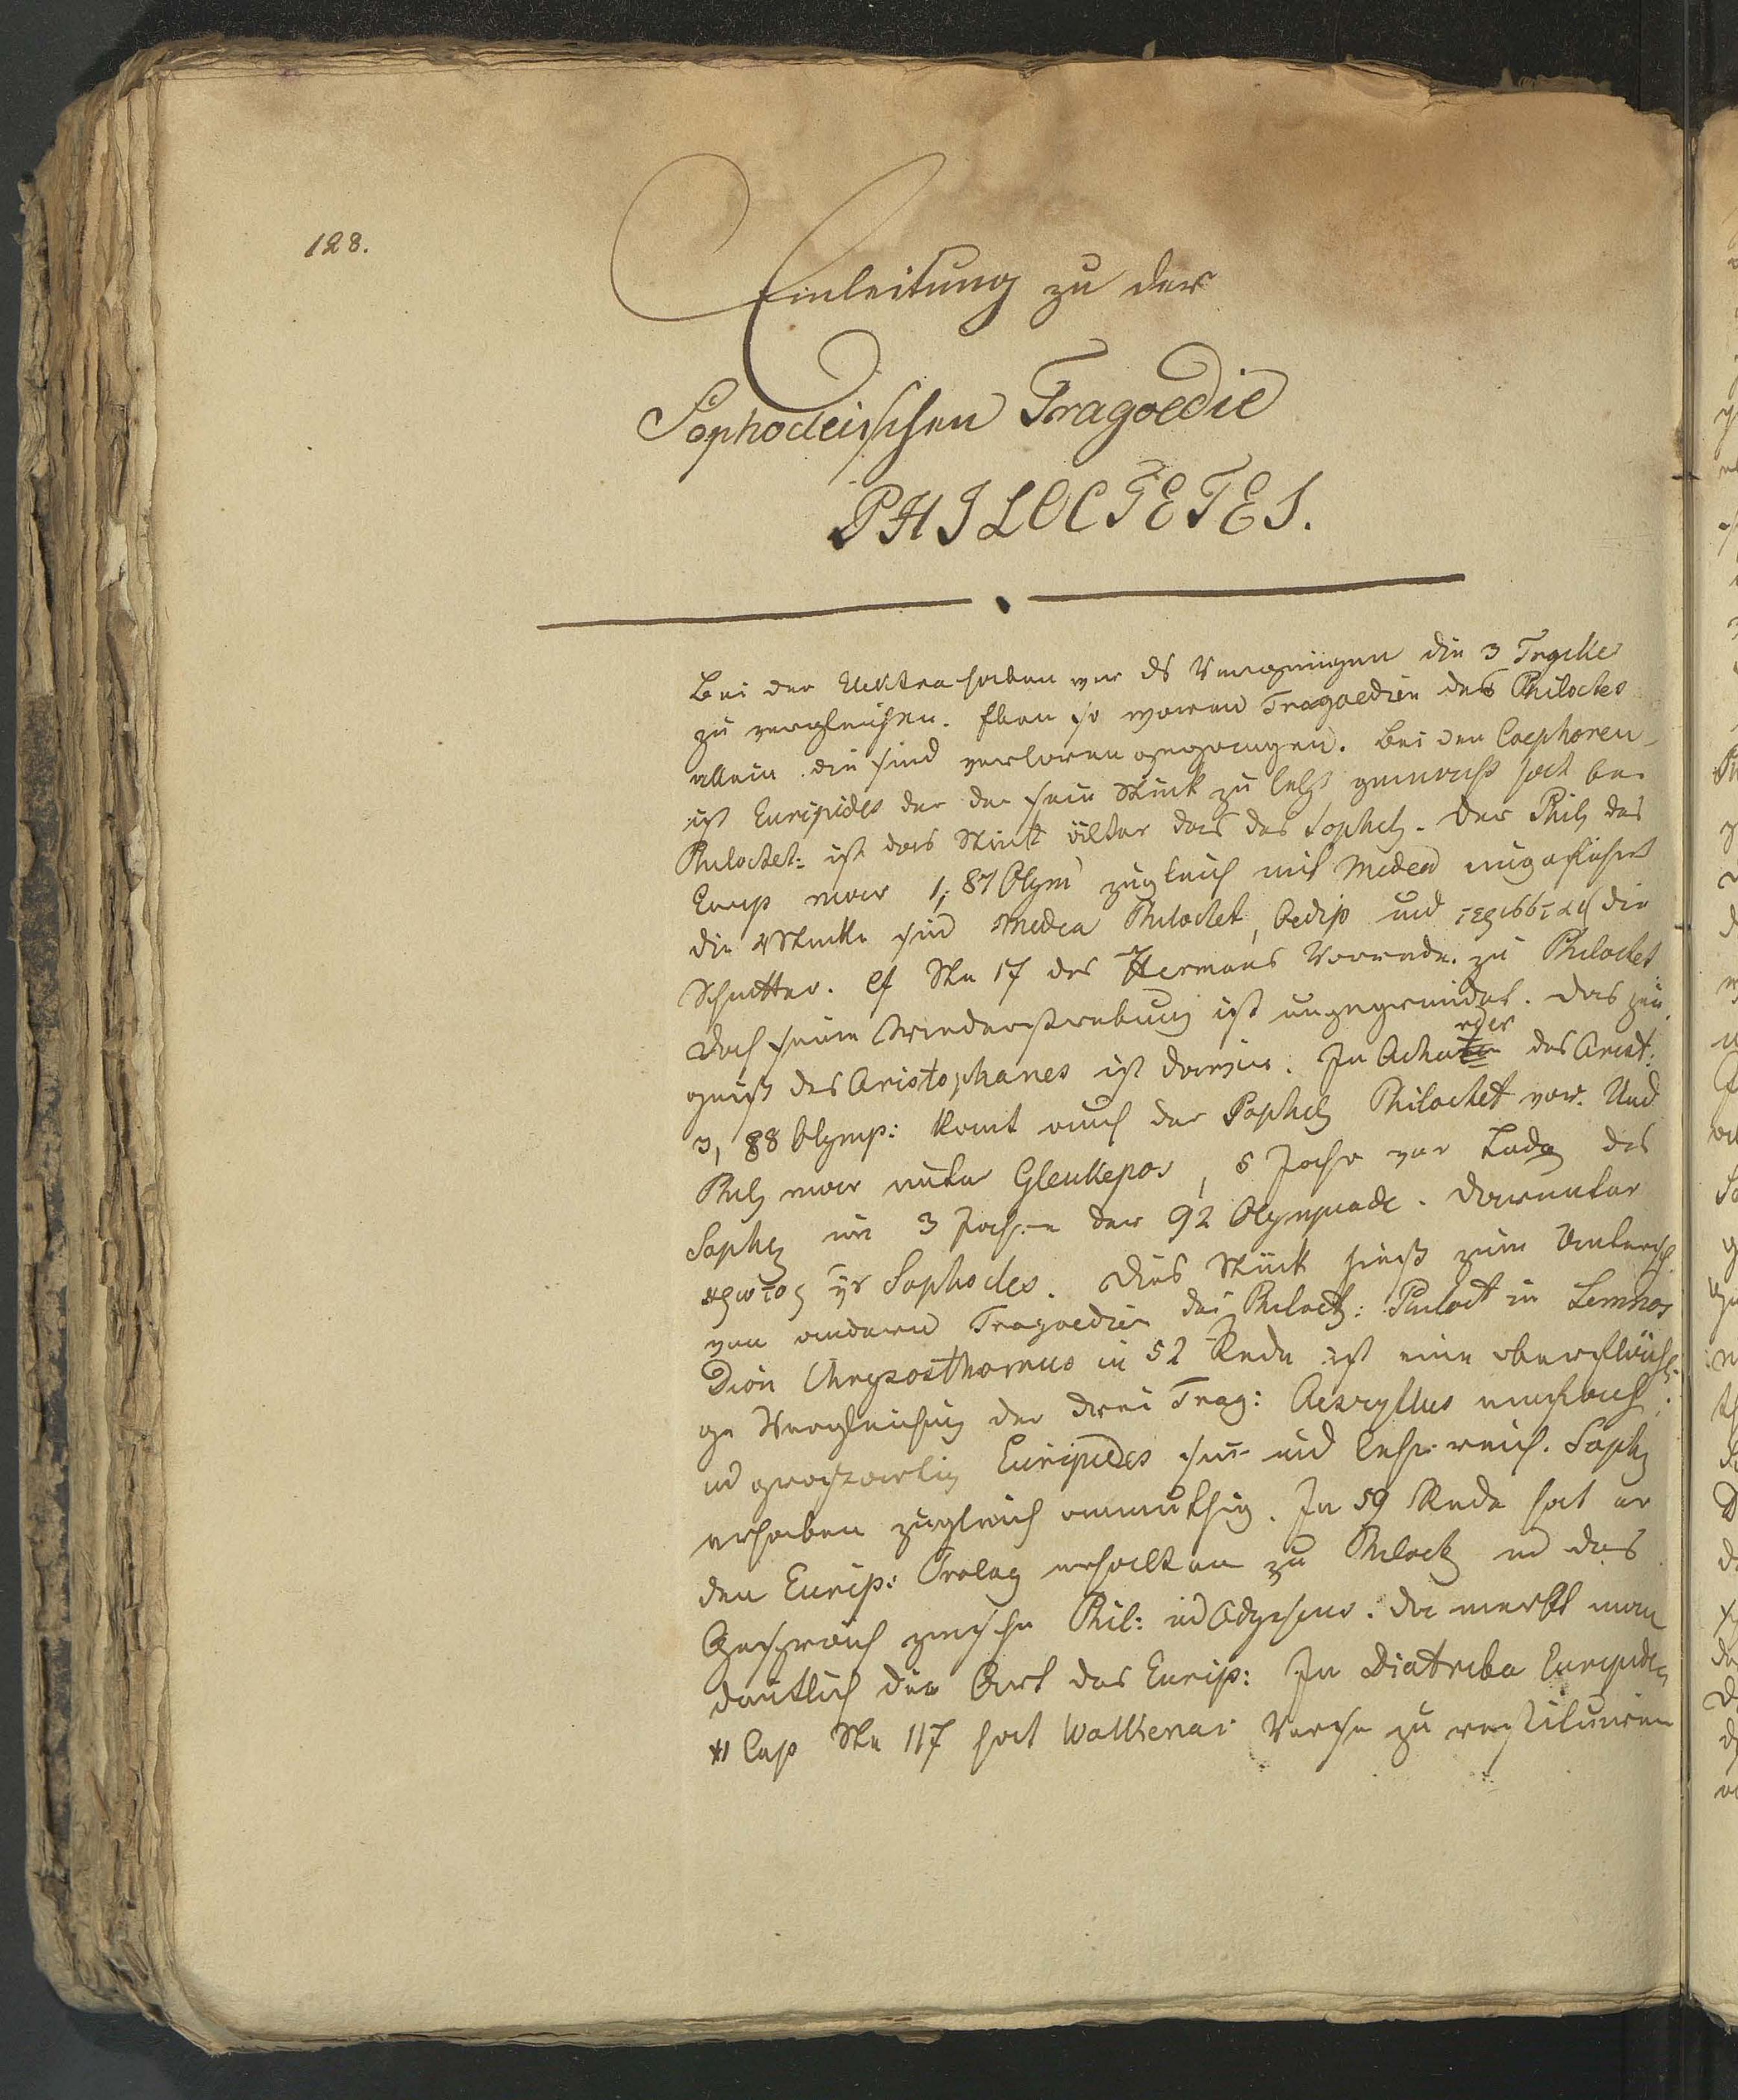 128.
Einleitung zu der
Sophocleischen Tragoedie
PHILOCTETES.
Bei der Elektra haben wir ds Vergnügen die 3 Trgike
zu vergleichen. Eben so waren Tragoedien des Philoctes
allein die sind verloren gegangen. Bei den Coephoren
ist Euripides der der sein Stück zu letzt gemacht hat bei
Philoctet: ist das Stück älter das des Sophcl. Der Phil des
Eurip war 1, 87 Olym zugleich mit Medea aufgeführt
die 4 Stücke sind Medea Philoctet, Oedip und die
Schnitter. cf Ste 17 des Hermans Vorrede zu Philoctet
doch seine Wiederstrebung ist ungegründet. Das zeu
gniß des Aristophanes ist darin. In Acha rner des Arist:
3, 88 Olymp: komt auch der Sophcl Philoctet vor. Und
Phil war unter Gleukepos, 5 Jahr vor Tode des
Sophcl im 3 Jahre der 92 Olympiade. Darunter
πρωτος Sophocles. Dies Stück hieß zum Untersch
von andern Tragoedien des Philoct: Philoct in Lemnos
Dion Chrysosthomus in 52 Rede ist eine oberfläch
ge Vergleichung der drei Trag: Aeschyllus einfach
ud großartig Euripides und lehrreich. Sophcl
erhaben zugleich anmuthig. In 59 Rede hat er
den Eurip: Prolog erhalten zu Philoct ud das
Gespräch zwische Phil: ud Odysseus. Da merkt man
deutlich die Art des Eurip: In Diatribe Euripides
11 Cap Ste 117 hat Walkenar Verse zu restituiren